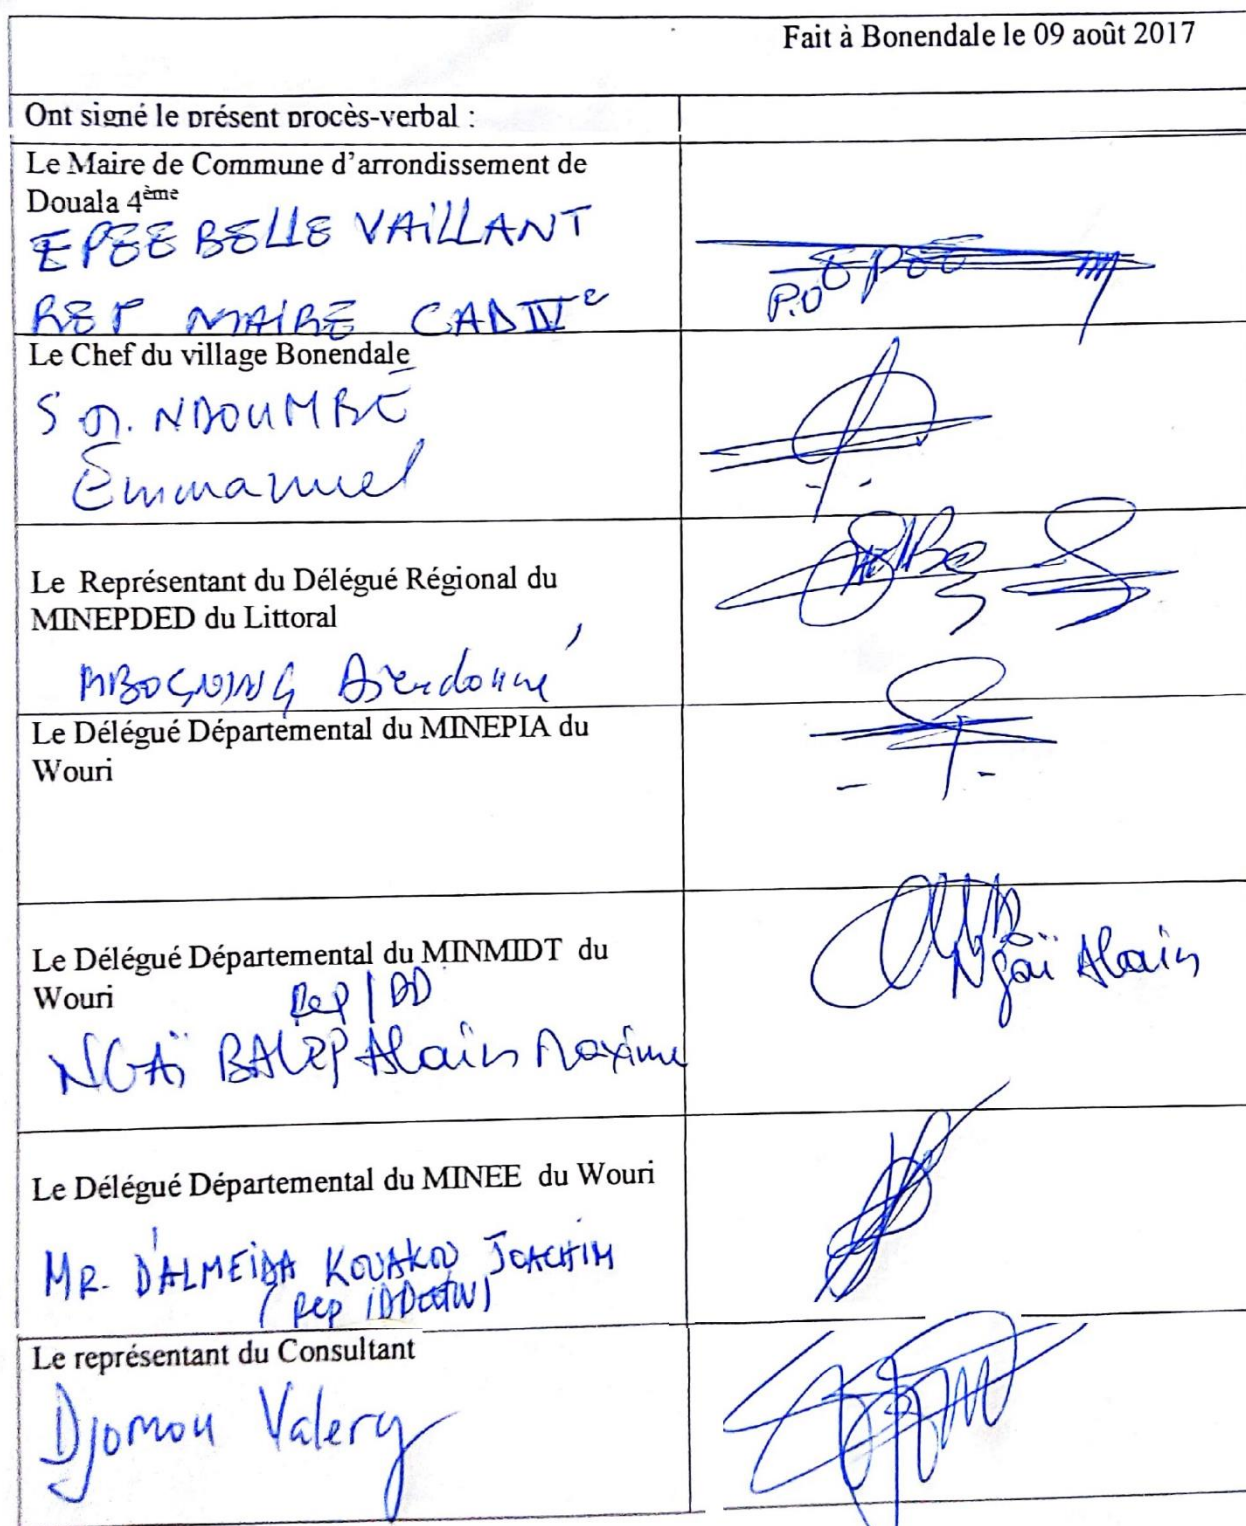 Fait à Bonendale le 09 août 2017
Ont signé le présent procès-verbal :
Le Maire de Commune d'arrondissement de
Douala 4ème
EPEE BELLE VAILLANT
P.O EPEE
REP MAIRE CAD IVe
Le Chef du village Bonendale
S M. NDOUMBÉ
Emmanuel
Le Représentant du Délégué Régional du
MINEPDED du Littoral
MBOGNING Dieudonné
Le Délégué Départemental du MINEPIA du
Wouri
Le Délégué Départemental du MINMIDT du
Wouri Rep/DD
Ngaï Alain
NGAÏ BALEP Alain Maxime
Le Délégué Départemental du MINEE du Wouri
MR. D'ALMEIDA KOUAKOU JOACHIM
(Rep
Le représentant du Consultant
Djomou Valery